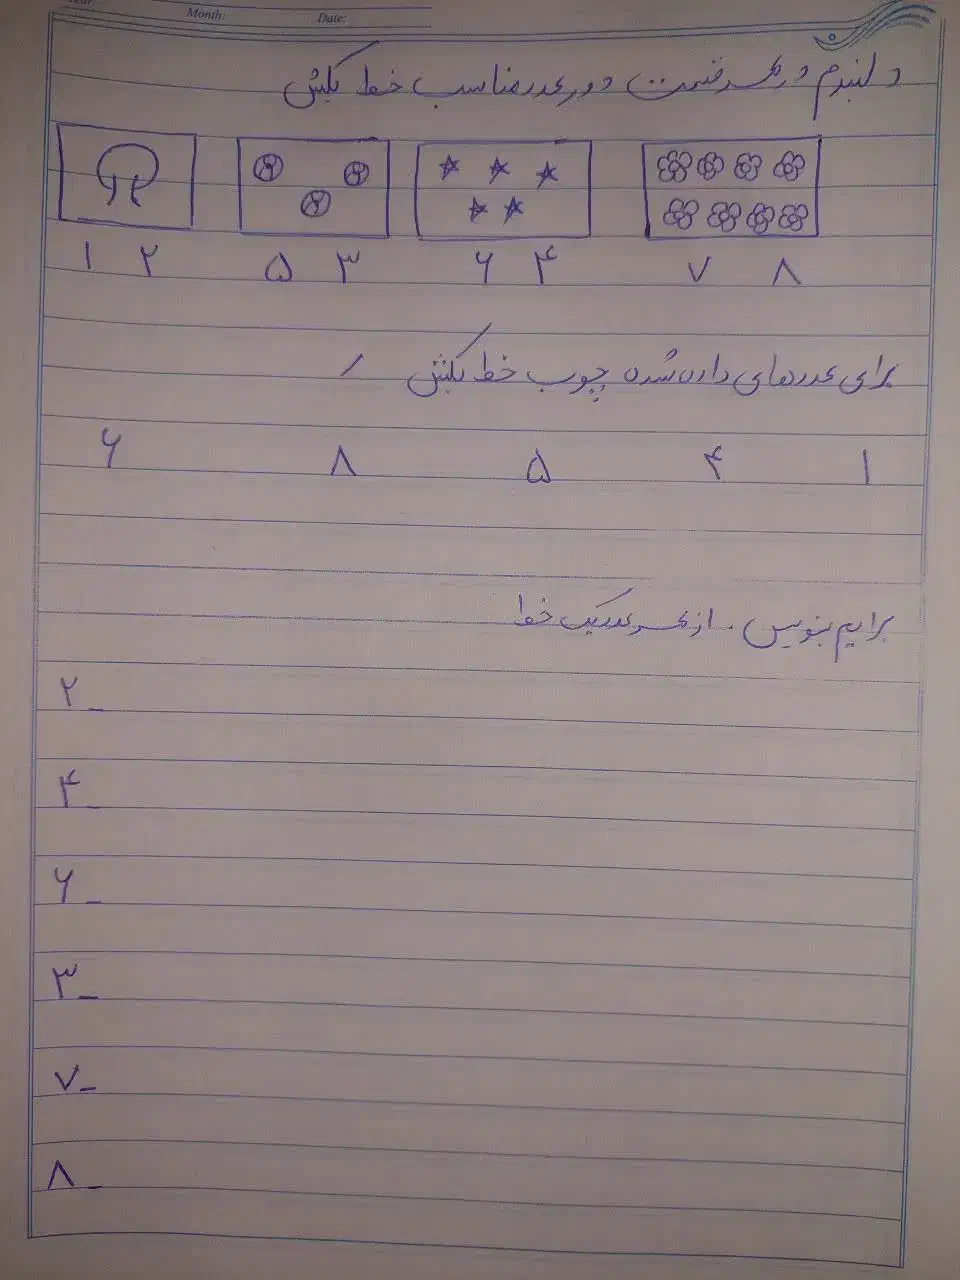 Year: Month: Date:
دلبندم در هر قسمت دور عدد مناسب خط بکش
۱ ۲ ۵ ۳ ۶ ۴ ۷ ۸
برای عددهای داده شده چوب خط بکش
۶ ۸ ۵ ۴ ۱
برایم بنویس. از هر عدد یک خط
۲_
۴_
۶_
۳_
۷_
۸_